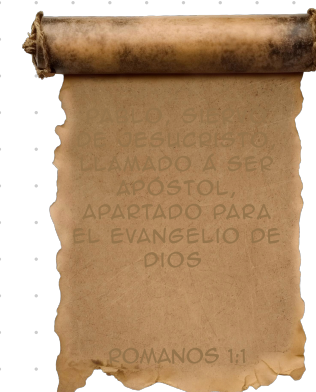 PABLO, SIERVO
DE JESUCRISTO,
LLAMADO A SER
APÓSTOL,
APARTADO PARA
EL EVANGELIO DE
DIOS
ROMANOS 1:1